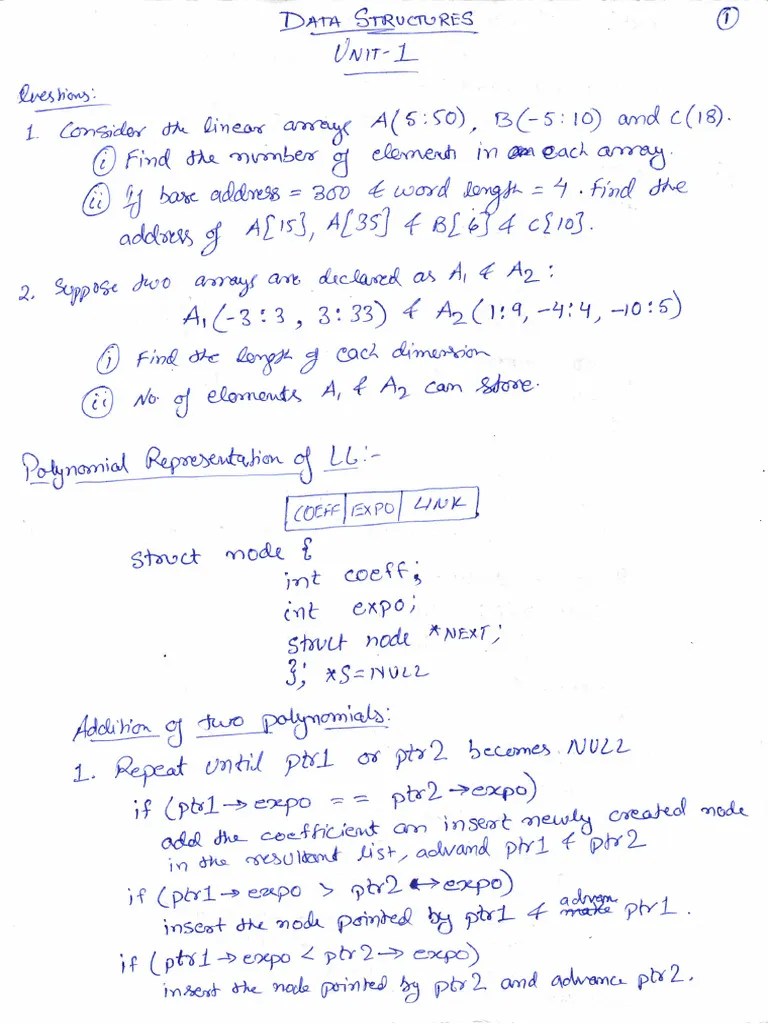 DATA STRUCTURES
1
UNIT-1
Questions:
1. Consider the linear arrays A(5:50), B(-5:10) and C(18).
i Find the number of element in each array.
ii If base address = 300 & word length = 4. Find the
address of A[15], A[35] & B[6] & C[10].
2. Suppose two arrays are declared as A1 & A2:
A1(-3:3, 3:33) & A2(1:9, -4:4, -10:5)
i Find the length of each dimension
ii No. of elements A1 & A2 can store.
Polynomial Representation of LL:-
COEFF EXPO LINK
struct node {
int coeff;
int expo;
struct node *NEXT;
}; *S=NULL
Addition of two polynomials:
1. Repeat until ptr1 or ptr2 becomes NULL
if (ptr1→expo == ptr2→expo)
add the coefficient an insert newly created node
in the resultant list, advand ptr1 & ptr2
if (ptr1→expo > ptr2↔expo)
insert the node pointed by ptr1 & ptr1.
if (ptr1→expo < ptr2→expo)
insert the node pointed by ptr2 and advance ptr2.